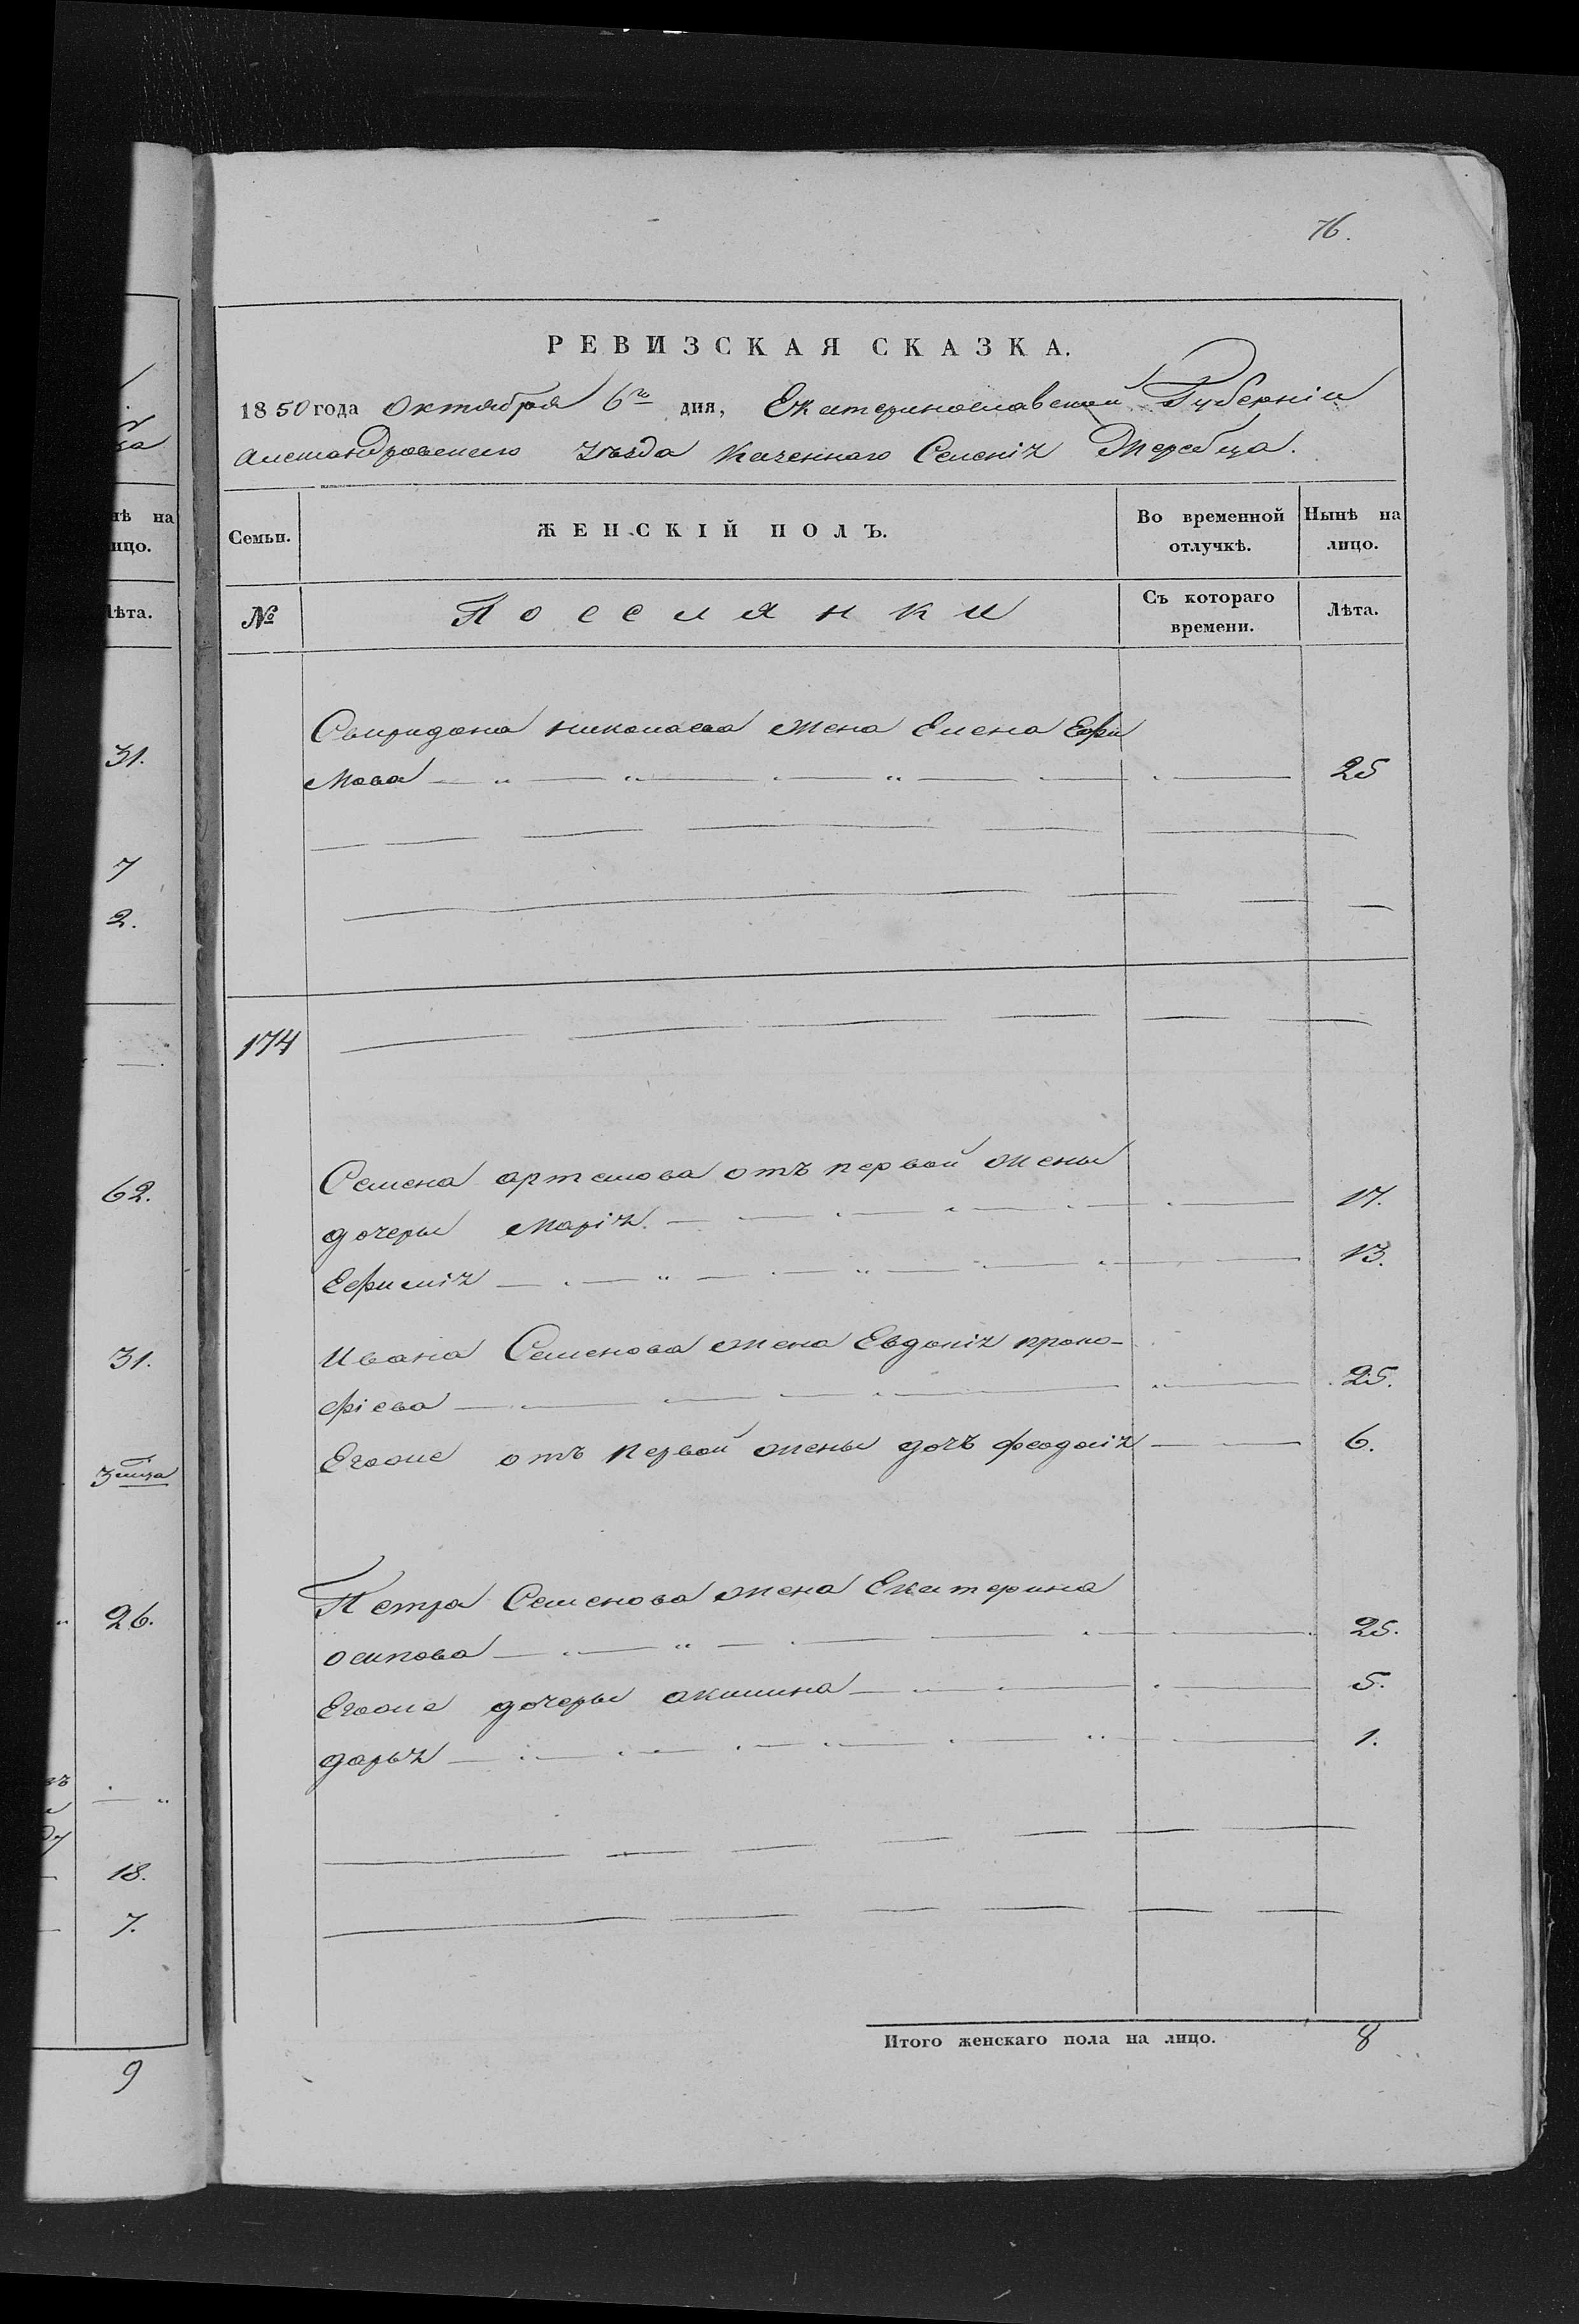 76.
РЕВИЗСКАЯ СКАЗКА.
1850 года Октября 6го дня, Екатеринославской Губерніи
александровскаго уѣзда Казеннаго Селенія Жеребца.
Семьи.
ЖЕНСКІЙ ПОЛЪ.
Во временной отлучкѣ.
Нынѣ на лицо.
№
Посселянки
Съ котораго времени.
Лѣта.
Свиридона николаева жена Елена Ефи
мова 25
174
Семена артемова отъ первой жены
дочери марія 17.
Ефимія 13.
Ивана Семенова жена Евдокія проко-
фіева 25.
Егоже отъ первой жены дочъ феодосія 6.
Петра Семенова жена Екатерина
осипова 25.
Егоже дочери акилина 5.
дарья 1.
Итого женскаго пола на лицо. 8
нѣ на
ицо.
лѣта.
31.
7
2.
62.
31.
26.
18.
7.
9